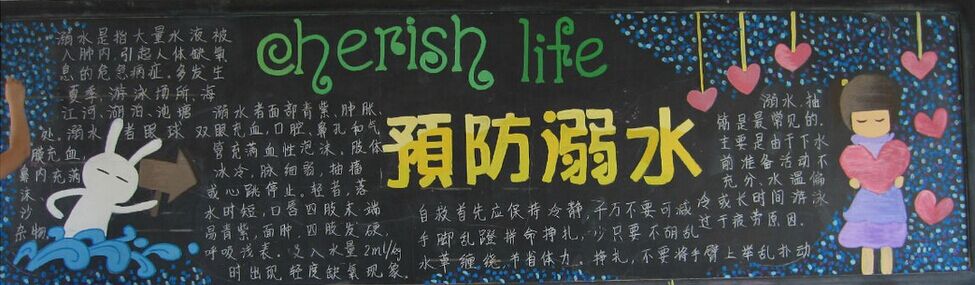 cherish life
預防溺水
溺水是指大量水液被
人肺内,引起人体缺氧
息的危急病症。多发生
夏季,游泳场所、海
江河、湖泊、池塘
处。溺水者眼球
膜充血,
鼻内充满
沫
沙
杂物
溺水者面部青紫、肿胀、
双眼充血,口腔、鼻孔和气
管充满血性泡沫。肢体
冰冷,脉细弱,抽搐
或心跳停止。轻苦,落
水时短,口唇四肢末端
易青紫,面肿,四肢发硬,
呼吸浅表。入水量2ml/kg
时出现轻度缺氧现象。
自救者先应保持冷静,千万不要可减
手脚乱蹬拼命挣扎,少只要不胡乱
水草缠绕,节省体力。挣扎,不要将手臂上举乱扑动
溺水、抽
筋是最常见的。
主要是由于下水
前准备活动不
充分、水温偏
冷或长时间游泳
过于疲劳原因。